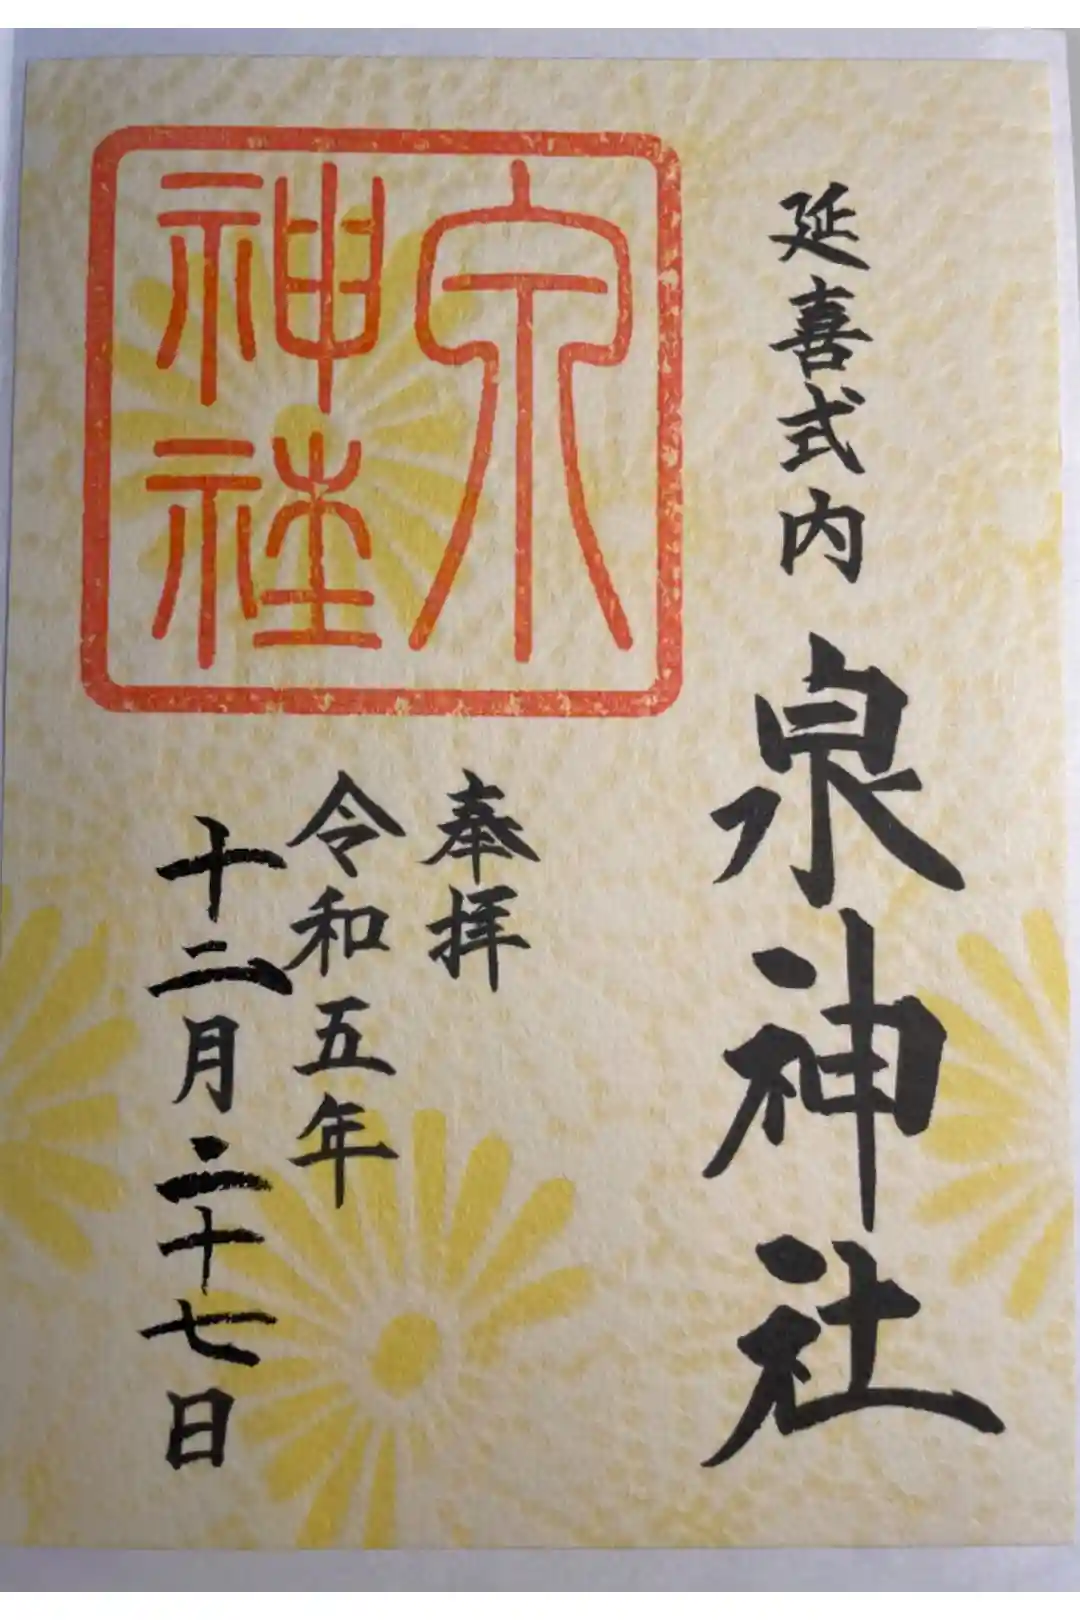 延喜式内 泉神社
泉
神社
奉拝
令和五年
十二月二十七日